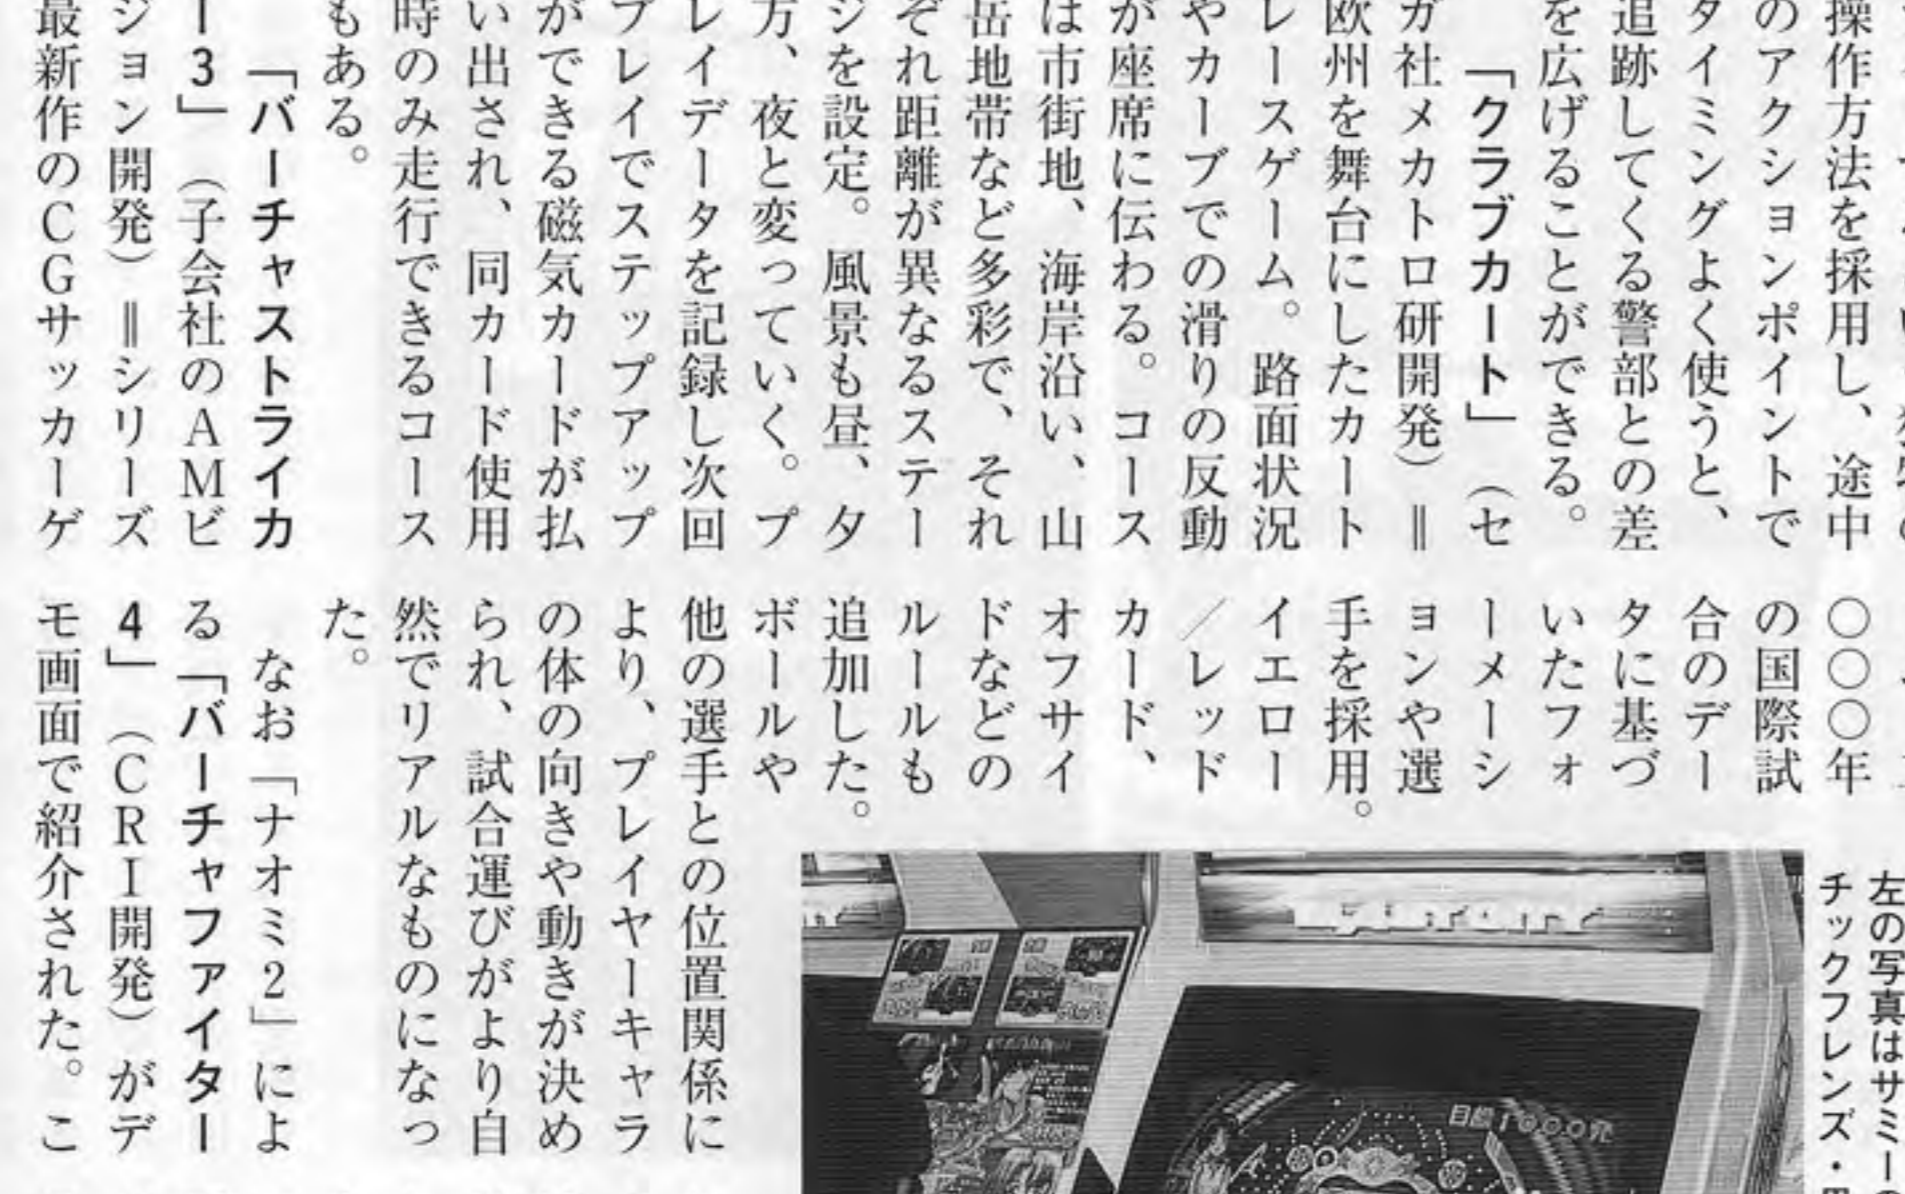 操作方法を採用し、途中
のアクションポイントで
タイミングよく使うと、
追跡してくる警部との差
を広げることができる。
「クラブカート」（セ
ガ社メカトロ研開発）＝
欧州を舞台にしたカート
レースゲーム。路面状況
やカーブでの滑りの反動
が座席に伝わる。コース
は市街地、海岸沿い、山
岳地帯など多彩で、それ
ぞれ距離が異なるステー
ジを設定。風景も昼、夕
方、夜と変っていく。プ
レイデータを記録し次回
プレイでステップアップ
ができる磁気カードが払
い出され、同カード使用
時のみ走行できるコース
もある。
「バーチャストライカ
ー3」（子会社のAMビ
ジョン開発）＝シリーズ
最新作のCGサッカーゲ
〇〇〇年
の国際試
合のデー
タに基づ
いたフォ
ーメーシ
ョンや選
手を採用。
イエロー
／レッド
カード、
オフサイ
ドなどの
ルールも
追加した。
ボールや
他の選手との位置関係に
より、プレイヤーキャラ
の体の向きや動きが決め
られ、試合運びがより自
然でリアルなものになっ
た。
なお「ナオミ2」によ
る「バーチャファイター
4」（CRI開発）がデ
モ画面で紹介された。こ
左の写真はサミーの
チックフレンズ・
目標1000発